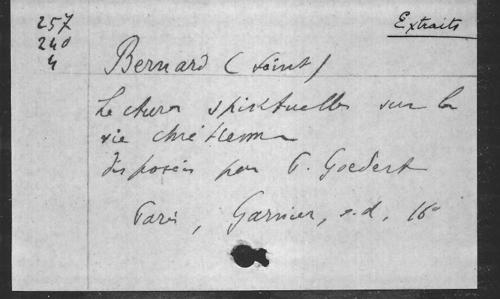 257
240
4
Extraits
Bernard (saint)
Lectures spirituelles sur la
vie chrétienne
disposées par P. Goedert
Paris, Garnier, s.d., 16°